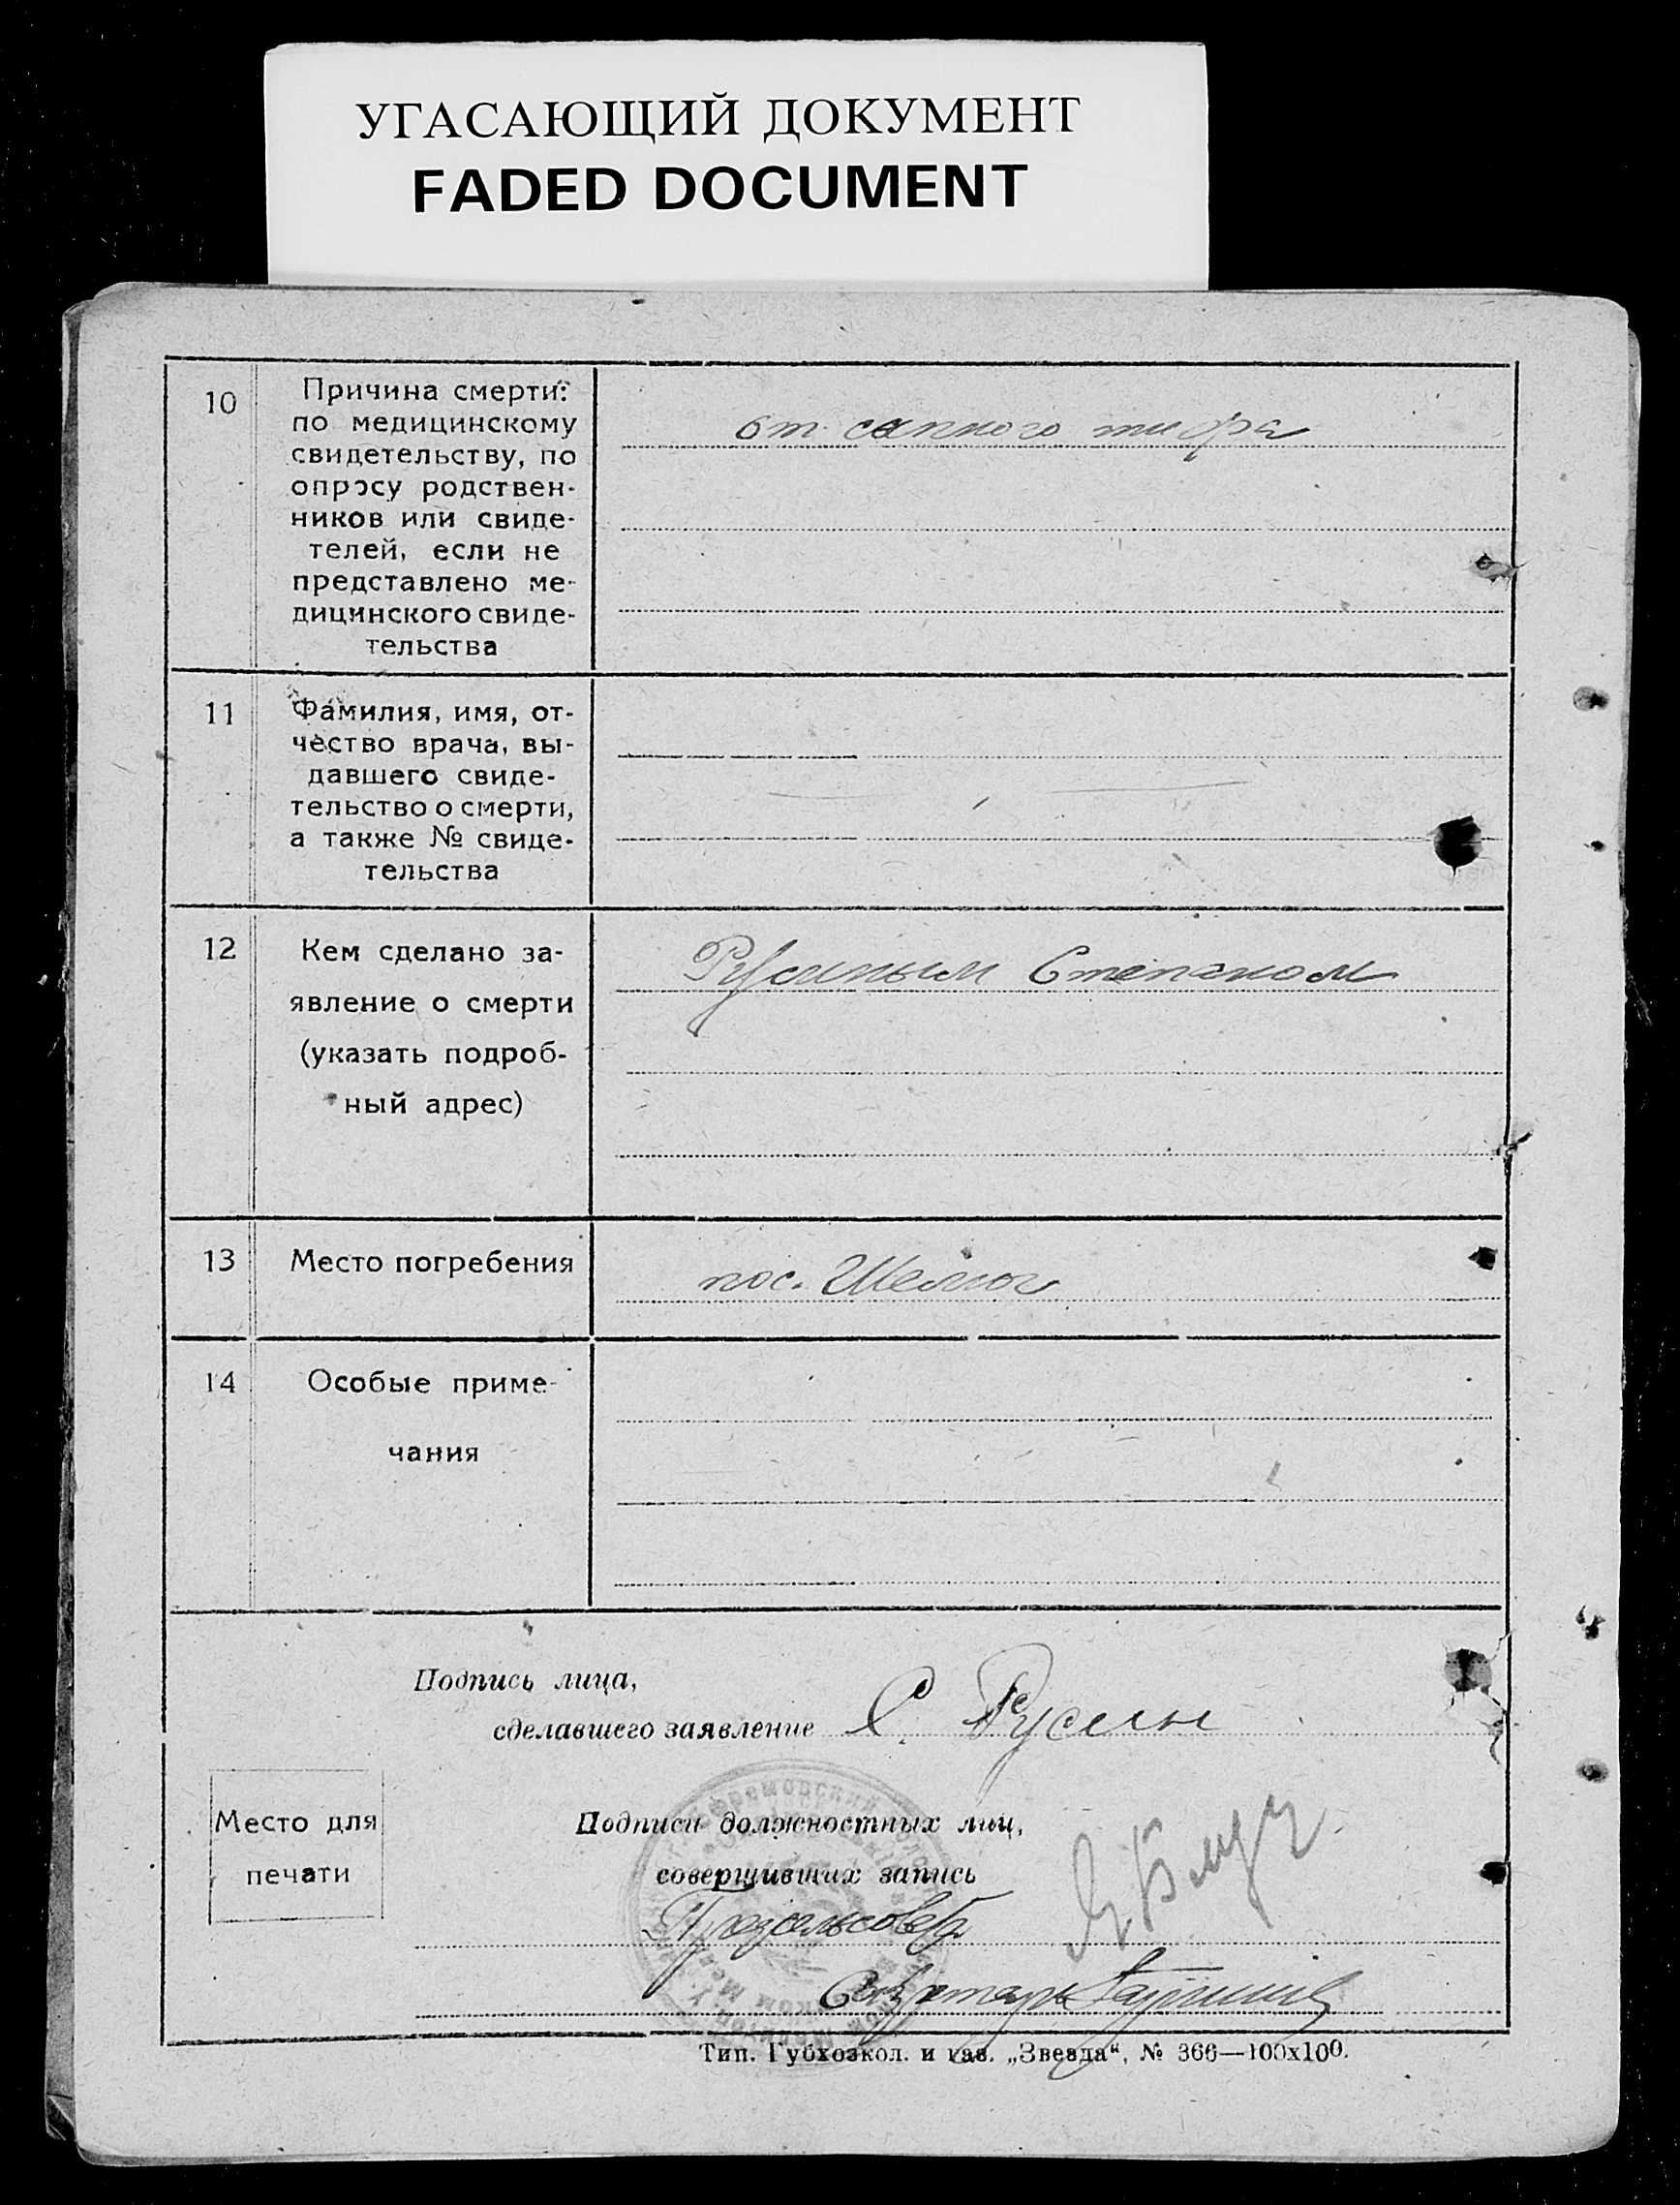 УГАСАЮЩИЙ ДОКУМЕНТ
FADED DOCUMENT
10
Причина смерти:
по медицинскому
свидетельству, по
опросу родствен-
ников или свиде-
телей, если не
представлено ме-
дицинского свиде-
тельства
от сапного тифа
11
Фамилия, имя, от-
чество врача, вы-
давшего свиде-
тельство о смерти,
а также № свиде-
тельства
12
Кем сделано за-
явление о смерти
(указать подроб-
ный адрес)
Русиным Степаном
13
Место погребения
пос.
14
Особые приме-
чания
Подпись лица,
сделавшего заявление С. Русин
Место для
печати
Подписи должностных лиц,
совершивших запись
Предсельсовета
Секретарь
Тип. Губхозкол. и газ. „Звезда“, № 366—100х100.